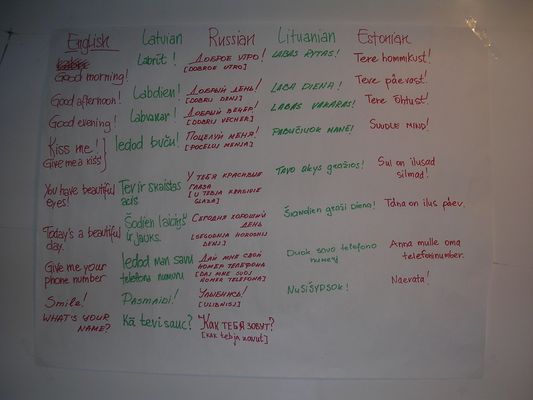 English Latvian Russian Lithuanian Estonian
Good morning! Labrīt! ДОБРОЕ УТРО! LABAS RYTAS! Tere hommikust!
[DOBROE UTRO]
Good afternoon! Labdien! ДОБРЫЙ ДЕНЬ! LABA DIENA! Tere päevast!
[DOBRIJ DENJ]
Good evening! Labvakar! ДОБРЫЙ ВЕЧЕР! LABAS VAKARAS! Tere õhtust!
[DOBRIJ VECHER]
Kiss me! Iedod buču! ПОЦЕЛУЙ МЕНЯ! PABUČIUOK MANE! SUUDLE MIND!
Give me a kiss [POCELUJ MENJA]
You have beautiful Tev ir skaistas У ТЕБЯ КРАСИВЫЕ TAVO akys gražios! Sul on ilusad
eyes! acis ГЛАЗА silmad!
[U TEBJA KRASIVIE
GLAZA]
Today's a beautiful Šodien laiciņš СЕГОДНЯ ХОРОШИЙ Šiandien graži Diena! Täna on ilus päev.
day. ir jauks. ДЕНЬ
[SEGODNJA HOROSHIJ
DENJ]
Give me your Iedod man savu ДАЙ МНЕ СВОЙ Duok savo telefono Anna mulle oma
phone number telefona numuru НОМЕР ТЕЛЕФОНА numerį telefoninumber.
[DAJ MNE SVOJ
NOMER TELEFONA]
Smile! Pasmaidi! УЛЫБНИСЬ! NUSIŠYPSOK! Naerata!
[ULIBNISJ]
WHAT'S YOUR Kā tevi sauc? КАК ТЕБЯ ЗОВУТ?
NAME? [kak tebja zovut]